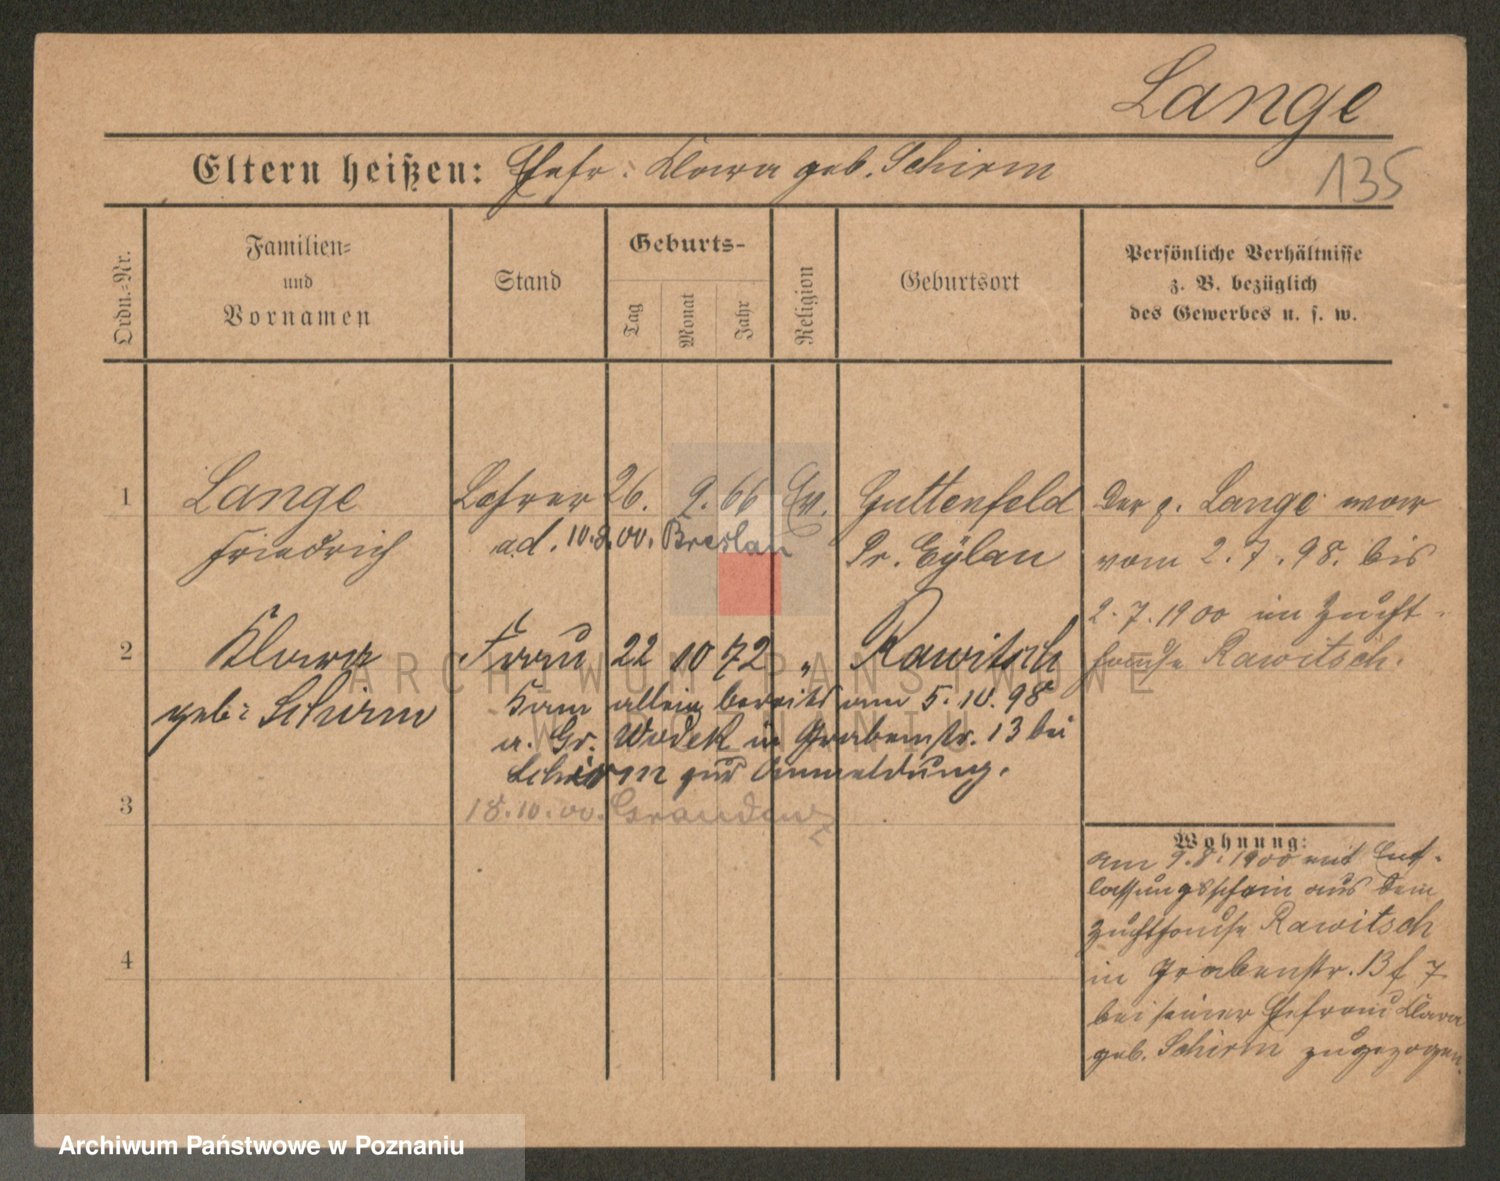 Lange
Eltern heißen: Ehefr: Klara geb. Schirm
135
Ordn.-Nr.
Familien-
und
Vornamen
Stand
Geburts-
Tag
Monat
Jahr
Religion
Geburtsort
Persönliche Verhältnisse
z. B. bezüglich
des Gewerbes u. s. w.
1 Lange Lehrer 26. 9. 66 Ev. Guttenfeld
Friedrich ad. 10.8.00. Breslau Pr. Eylau
2 Klara Frau 22 10 72 " Rawitsch
geb: Schirm Kam allein bereits am 5.10.98
a. Gr. Wodek in Grabenstr. 13 bei
Schirm zur Anmeldung.
3 18.10.00. Graudenz
4
Der p. Lange war
vom 2.7.98. bis
2.7.1900 im Zucht-
hause Rawitsch.
Wohnung:
Am 9.8.1900 mit Ent-
lassungsschein aus dem
Zuchthause Rawitsch
in Grabenstr. 13 f 7
bei seiner Ehefrau Klara
geb. Schirm zugezogen.
ARCHIWUM PAŃSTWOWE
W POZNANIU
Archiwum Państwowe w Poznaniu